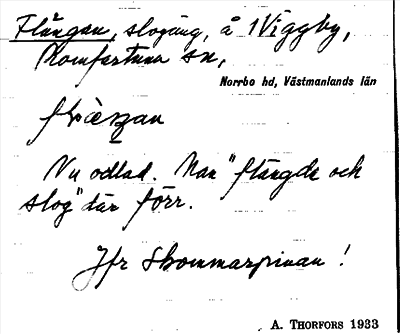 Flängan, slogäng, å 1 Viggby,
Romfartuna sn,
Norrbo hd, Västmanlands län
Nu odlad. Man "flängde och
slog" där förr.
Jfr Skommarpinan!
A. THORFORS 1933